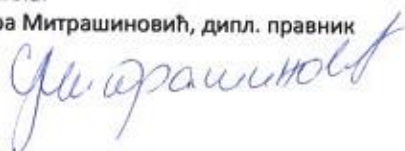 ра Митрашиновић, дипл. правник
Митрашиновић